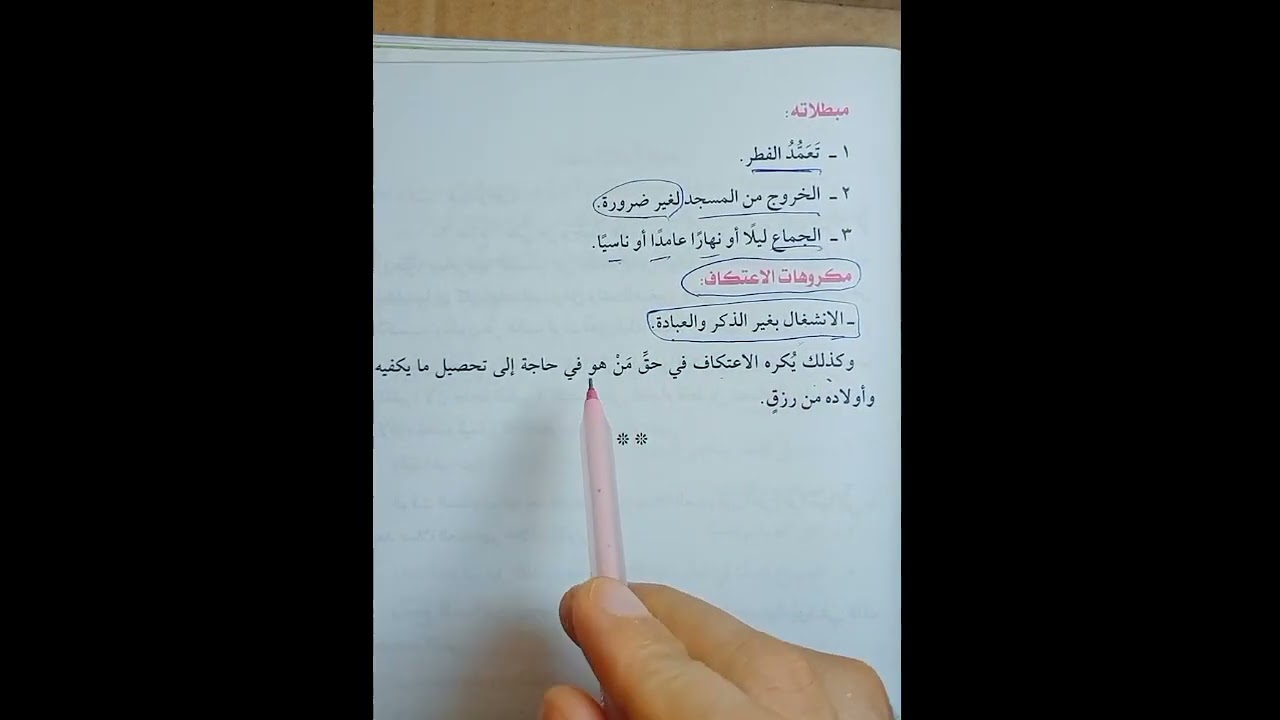 مبطلاته:
١ ـ تَعَمُّدُ الفطر.
٢ ـ الخروج من المسجد لغير ضرورة.
٣ ـ الجماع ليلًا أو نهارًا عامدًا أو ناسيًا.
مكروهات الاعتكاف:
ـ الانشغال بغير الذكر والعبادة.
وكذلك يُكره الاعتكاف في حقِّ مَنْ هو في حاجة إلى تحصيل ما يكفيه
وأولاده من رزقٍ.
**